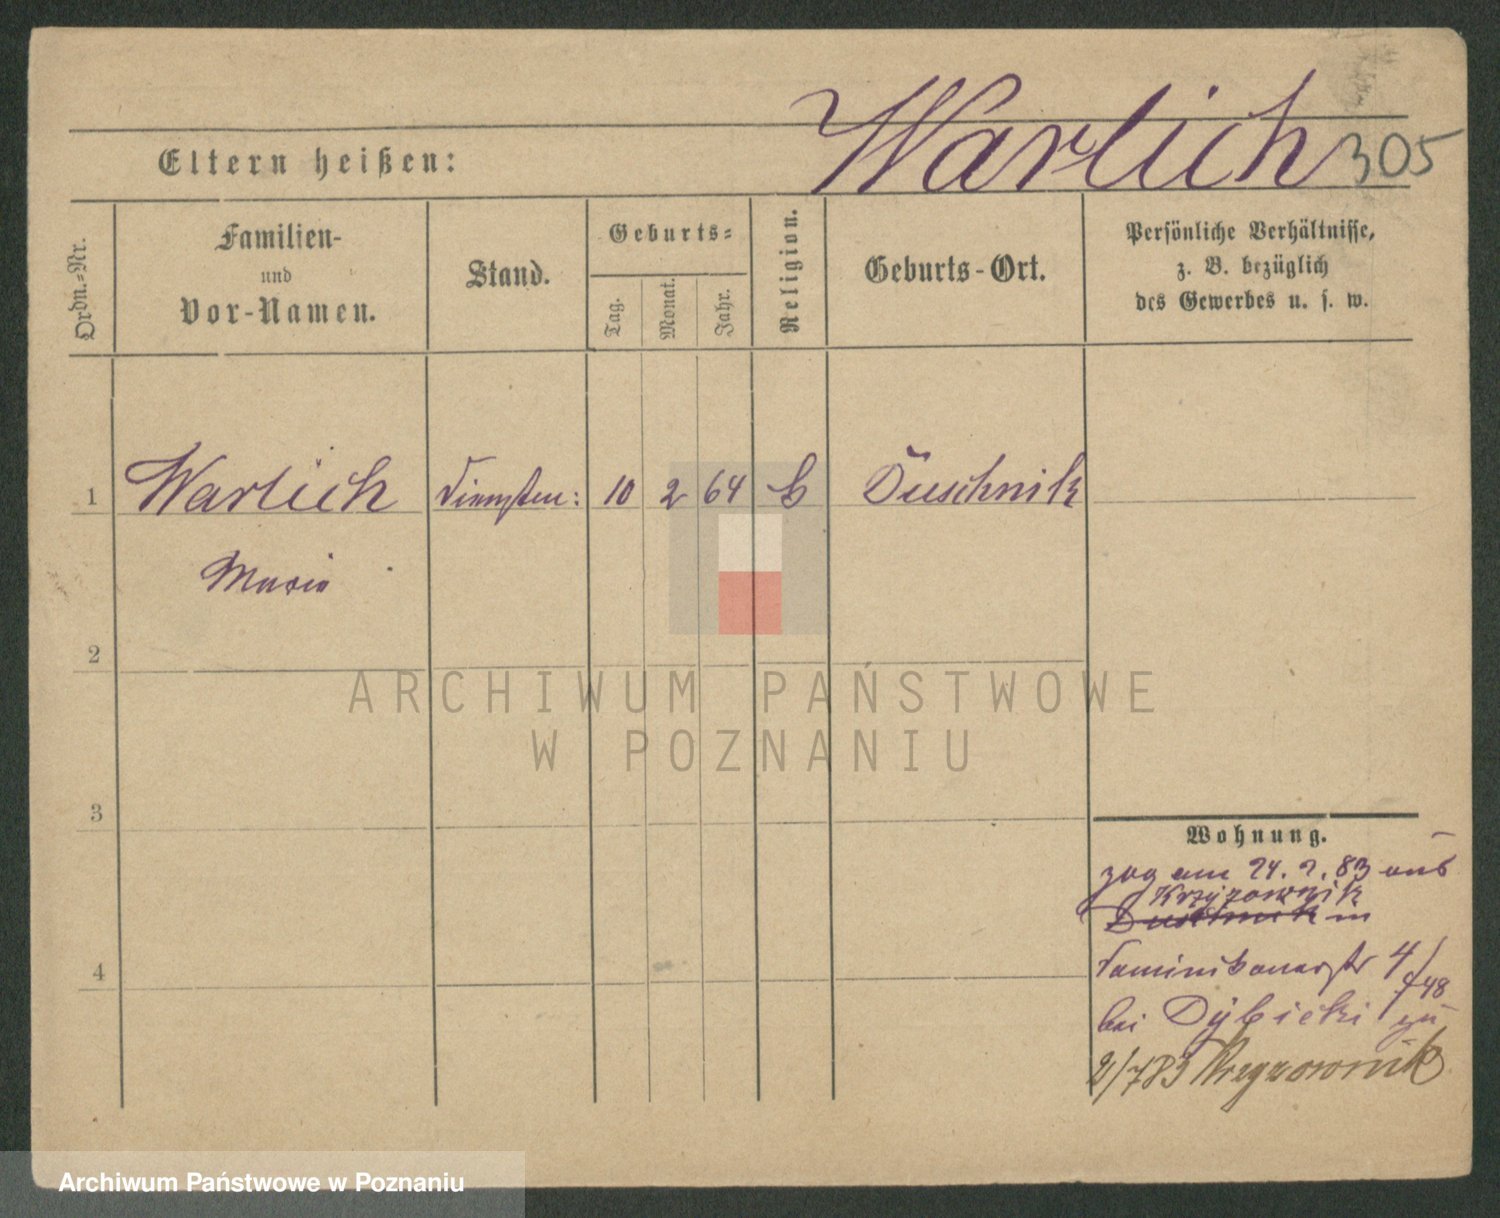 Warlich
305
Eltern heißen:
Ordn.-Nr.
Familien-
und
Vor-Namen.
Stand.
Geburts-
Tag.
Monat.
Jahr.
Religion.
Geburts-Ort.
Persönliche Verhältnisse,
z. B. bezüglich
des Gewerbes u. s. w.
1 Warlich 10 2 64 Duschnik
Marie
2
3
4
ARCHIWUM PAŃSTWOWE
W POZNANIU
Wohnung.
zog am 24. 2. 83 aus
Krzyzownik
Duschnik in
Dominikanerstr 4/48
bei Dybicki zu
2/783 Krzyzownik
Archiwum Państwowe w Poznaniu